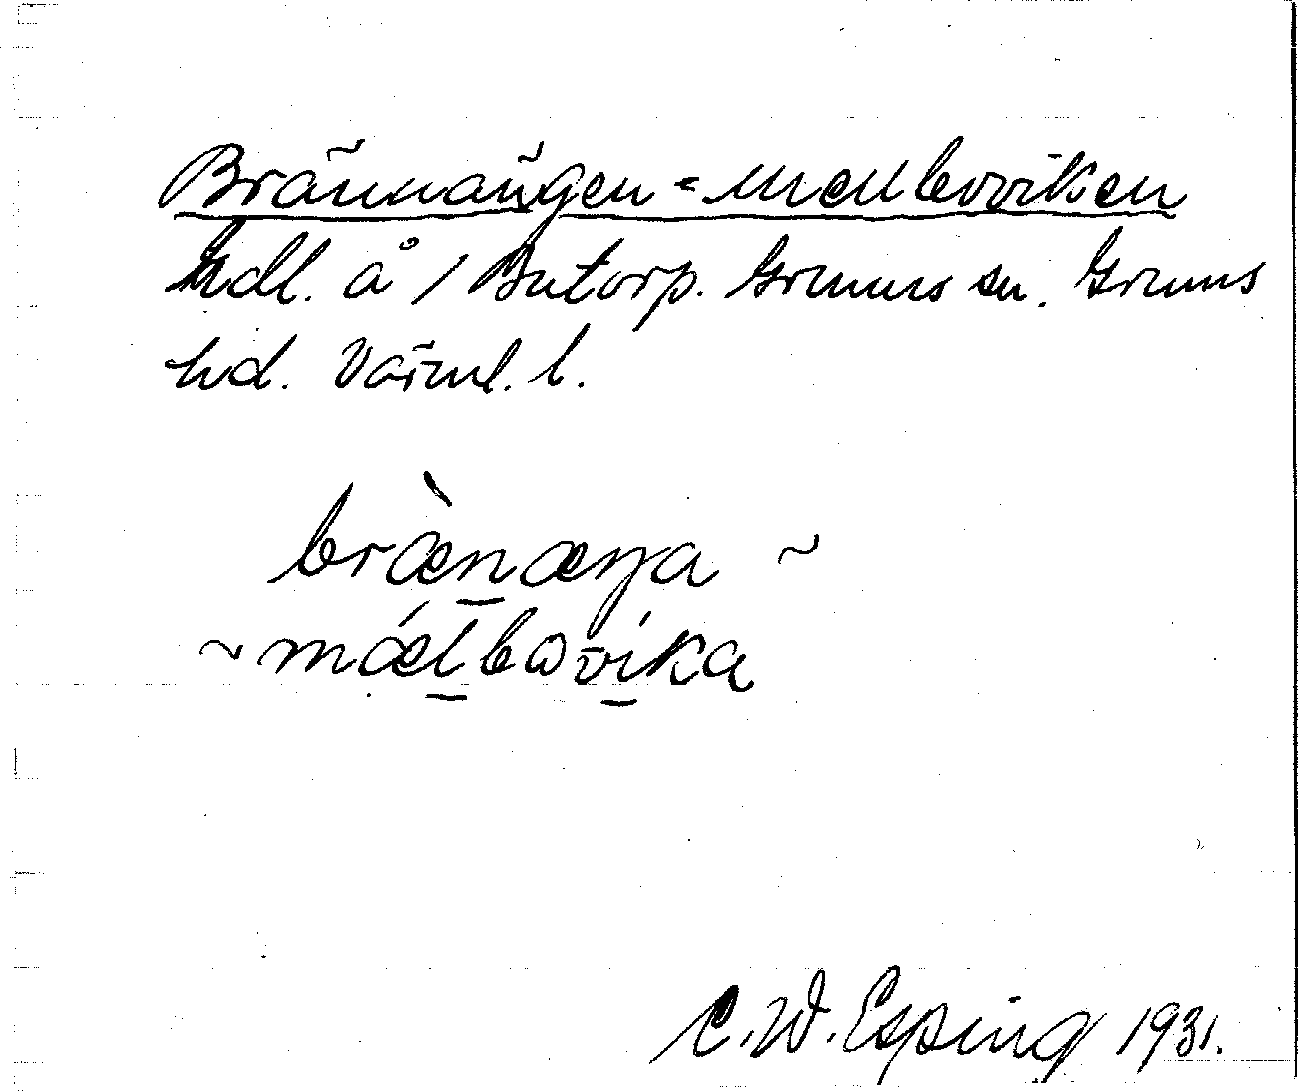 Brännängen-Mellboviken
hdl. å 1 Butorp. Grums sn. Grums
hd. Värml. l.
bræ̀n̲æŋa ~
~ mǽl̲bωvi̲ka
C. W. Esping 1931.